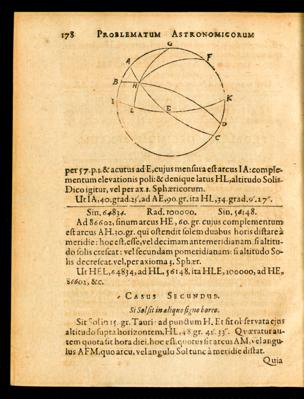 178 PROBLEMATUM ASTRONOMICORUM
G
A F
B H
I K
L E
D
C
per 57. p.1. & acutus ad E, cujus mensura est arcus IA: comple-
mentum elevationis poli: & denique latus HL, altitudo Solis.
Dico igitur, vel per ax. 1. Sphæricorum.
Ut IA, 40. grad. 25', ad AE, 90. gr. ita HL, 34. grad. 9'. 27''.
Sin. 64834. Rad. 100000. Sin. 56148.
Ad 86602, sinum arcus HE, 60. gr. cujus complementum
est arcus AH, 30. gr. qui ostendit solem duabus horis distare à
meridie: hoc est, esse, vel decimam antemeridianam. si altitu-
do solis crescat: vel secundam pomeridianam: si altitudo So-
lis decrescat. vel, per axioma 3. Sphær.
Ut HEL, 64834, ad HL, 56148, ita HLE, 100000, ad HE,
86602, &c.
CASUS SECUNDUS.
Si Sol sit in aliquo signo boreo.
Sit Sol in 15. gr. Tauri: ad punctum H. Et sit observata ejus
altitudo supra horizontem, HL, 48 gr. 45'. 33''. Quæratur au-
tem quota sit hora diei, hoc est, quotus sit arcus AM, vel angu-
lus AFM, quo arcu, vel angulo Sol tunc à meridie distat.
Quia